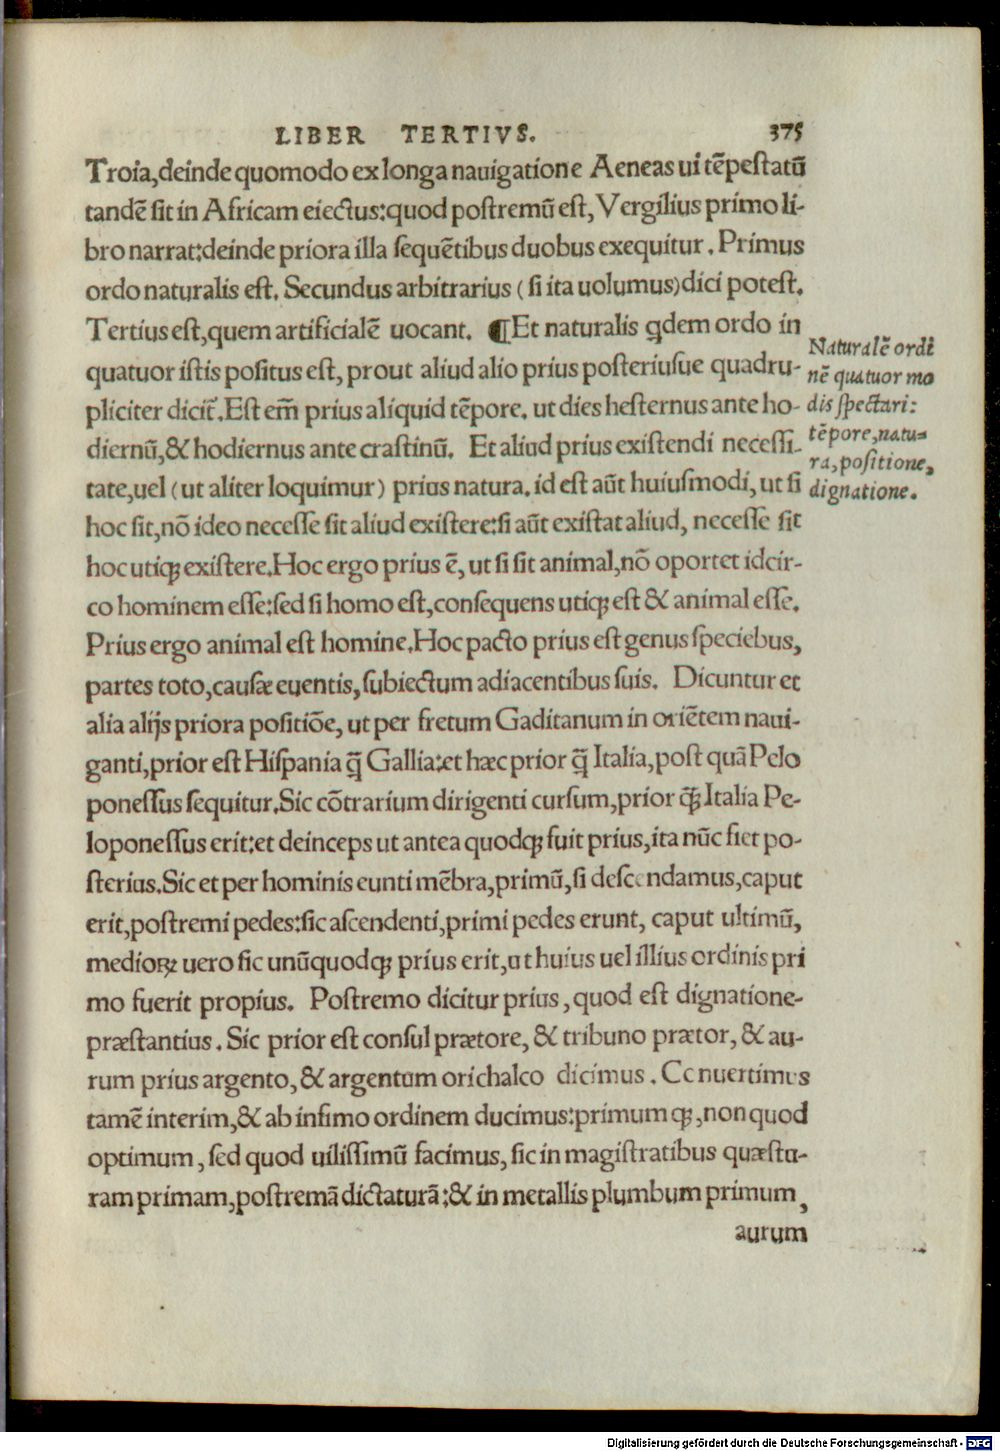 LIBER TERTIVS. 375
Troia,deinde quomodo ex longa nauigatione Aeneas ui tēpestatū
tandē sit in Africam eiectus:quod postremū est, Vergilius primo li-
bro narrat:deinde priora illa sequētibus duobus exequitur. Primus
ordo naturalis est. Secundus arbitrarius (si ita uolumus)dici potest.
Tertius est,quem artificialē uocant. ¶Et naturalis q̄dem ordo in
quatuor istis positus est, prout aliud alio prius posteriusue quadru-
pliciter dicit̄. Est em̄ prius aliquid tēpore. ut dies hesternus ante ho-
diernū,& hodiernus ante crastinū. Et aliud prius existendi necessi-
tate,uel (ut aliter loquimur) prius natura. id est aūt huiusmodi, ut si
hoc sit,nō ideo necesse sit aliud existere:si aūt existat aliud, necesse sit
hoc utiqꝫ existere.Hoc ergo prius ē, ut si sit animal,nō oportet idcir-
co hominem esse:sed si homo est,consequens utiqꝫ est & animal esse.
Prius ergo animal est homine.Hoc pacto prius est genus speciebus,
partes toto,causæ euentis, subiectum adiacentibus suis. Dicuntur et
alia alijs priora positiōe, ut per fretum Gaditanum in oriētem naui-
ganti,prior est Hispania q̄ Gallia:et hæc prior q̄ Italia, post quā Pelo
ponessus sequitur.Sic cōtrarium dirigenti cursum,prior q̄ꝫ Italia Pe-
loponessus erit:et deinceps ut antea quodqꝫ fuit prius,ita nūc fiet po-
sterius.Sic et per hominis eunti mēbra,primū,si descendamus,caput
erit,postremi pedes:sic ascendenti,primi pedes erunt, caput ultimū,
medioꝝ uero sic unūquodqꝫ prius erit,ut huius uel illius ordinis pri
mo fuerit propius. Postremo dicitur prius, quod est dignatione-
præstantius. Sic prior est consul prætore, & tribuno prætor, & au-
rum prius argento, & argentum orichalco dicimus. Conuertimus
tamē interim,& ab infimo ordinem ducimus:primumqꝫ,non quod
optimum, sed quod uilissimū facimus, sic in magistratibus quæstu-
ram primam,postremā dictaturā:& in metallis plumbum primum,
aurum
Naturalē ordi
nē quatuor mo
dis spectari:
tēpore,natu-
ra,positione,
dignatione.
Digitalisierung gefördert durch die Deutsche Forschungsgemeinschaft - DFG